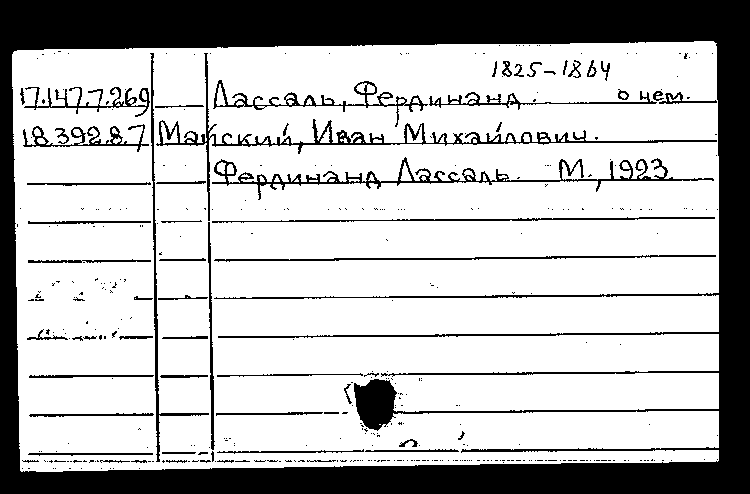 1825-1864
17.147.7.269 Лассаль, Фердинанд. о нем.
18.392.8.7 Майский, Иван Михайлович.
Фердинанд Лассаль. М., 1923.